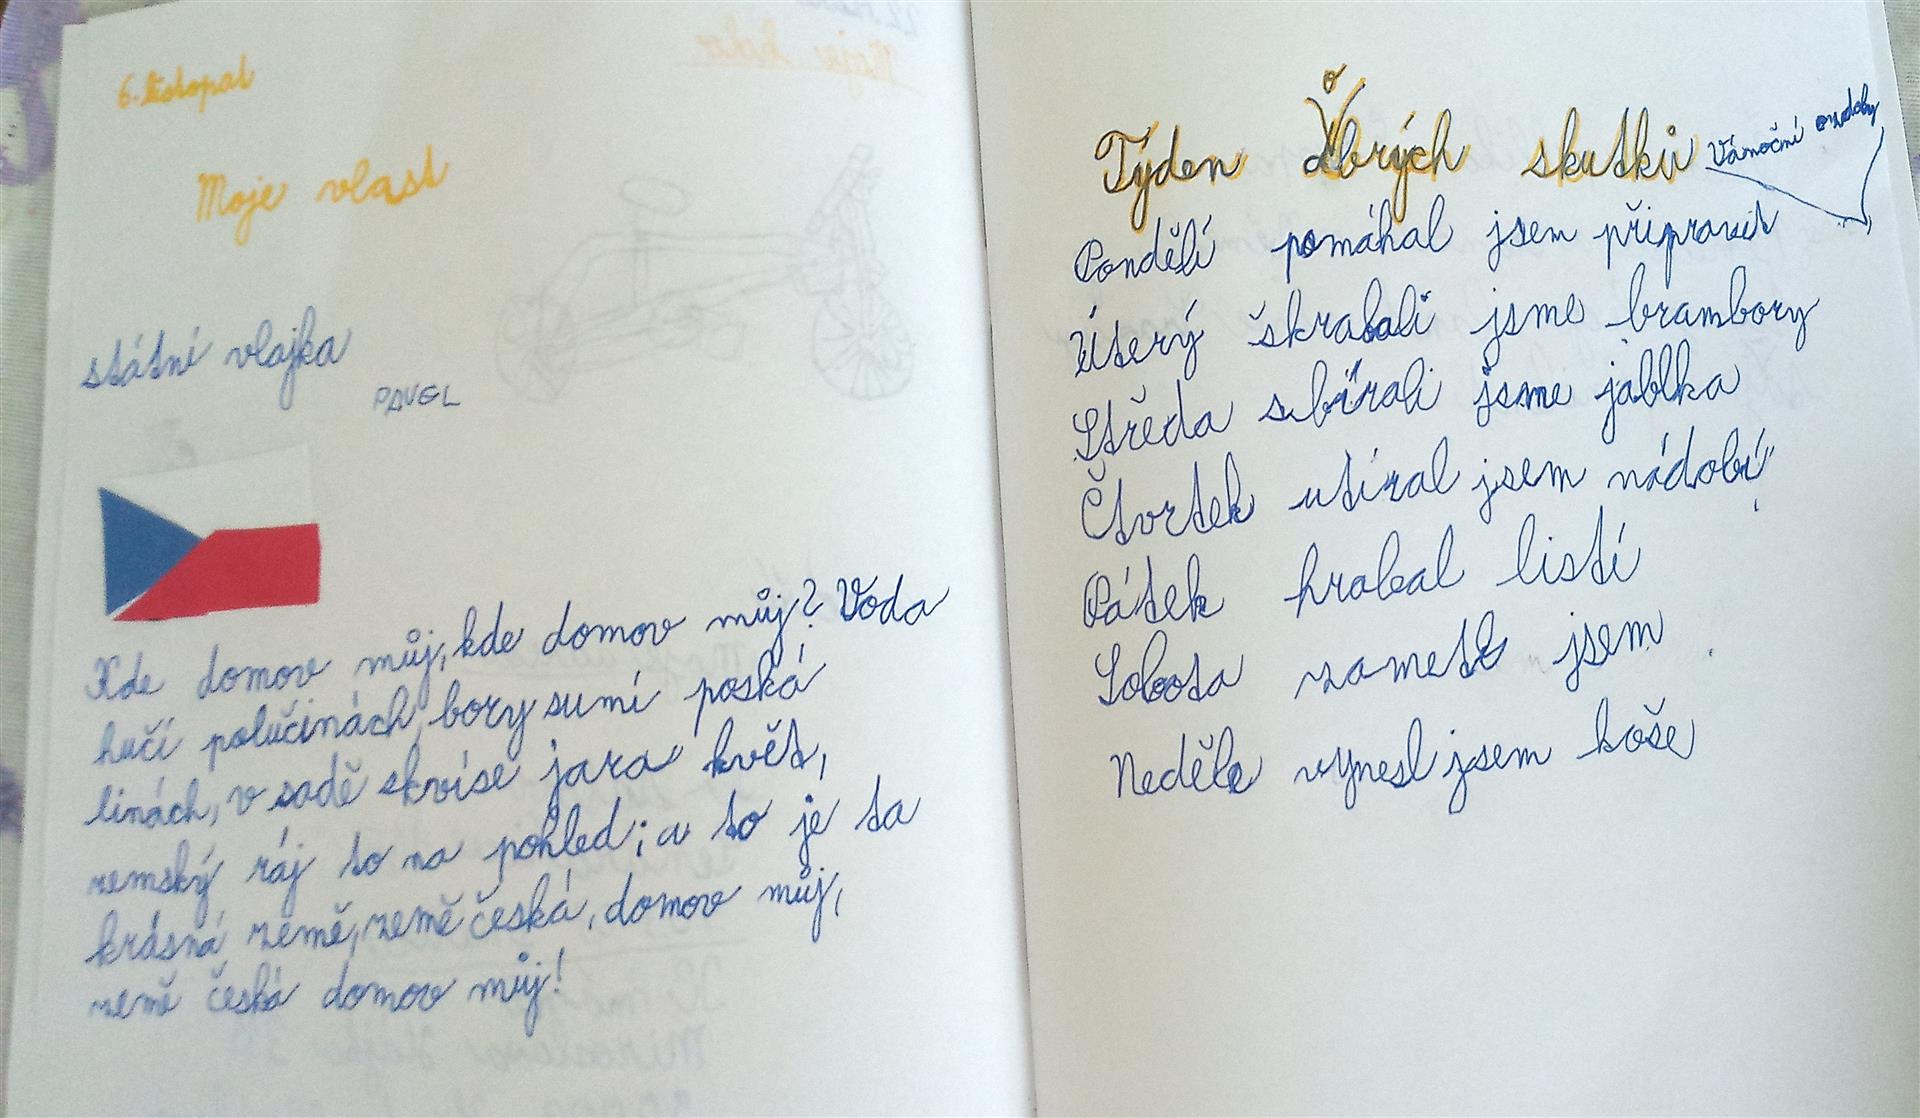 6. listopad
Moje vlast
státní vlajka
PAVEL
Kde domov můj, kde domov můj? Voda
hučí polučinách, bory sumí poská
linách, v sadě skvíse jara květ,
zemský ráj to na pohled; a to je ta
krásná země, země česká, domov můj,
země česká domov můj!
Týden dobrých skutků
Vánoční ozdoby
Pondělí pomáhal jsem připravit
Úterý škrabali jsme brambory
Středa sbírali jsme jablka
Čtvrtek utíral jsem nádobí
Pátek hrabal listí
Sobota zametl jsem
Neděle vynesl jsem koše